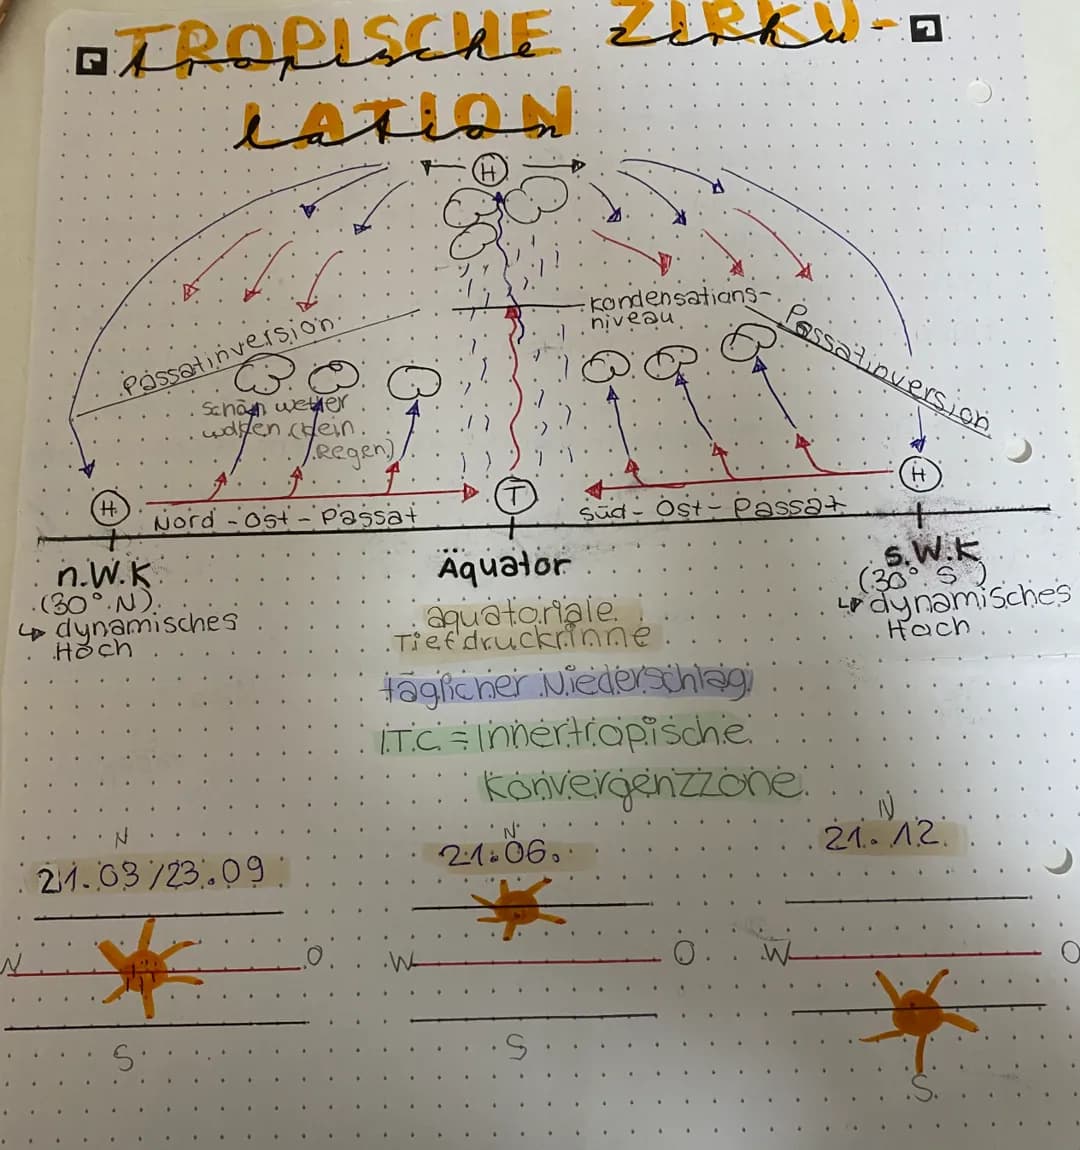 TROPISCHE ZIRKU-
tropische zirku-
LATION
lation
H
Kondensations-
niveau
Passatinversion
Passatinversion
Schön wetter
wolken (kein
Regen)
H
T
H
Nord-Ost-Passat
Süd-Ost-Passat
n.W.K
(30° N)
↳ dynamisches
Hoch
Äquator
äquatoriale
Tiefdruckrinne
täglicher Niederschlag
I.T.C. = Innertropische
Konvergenzzone
s.W.K
(30° S)
↳ dynamisches
Hoch
N
21.03/23.09
W O
S
N
21.06.
W O
S
N
21.12.
W O
S